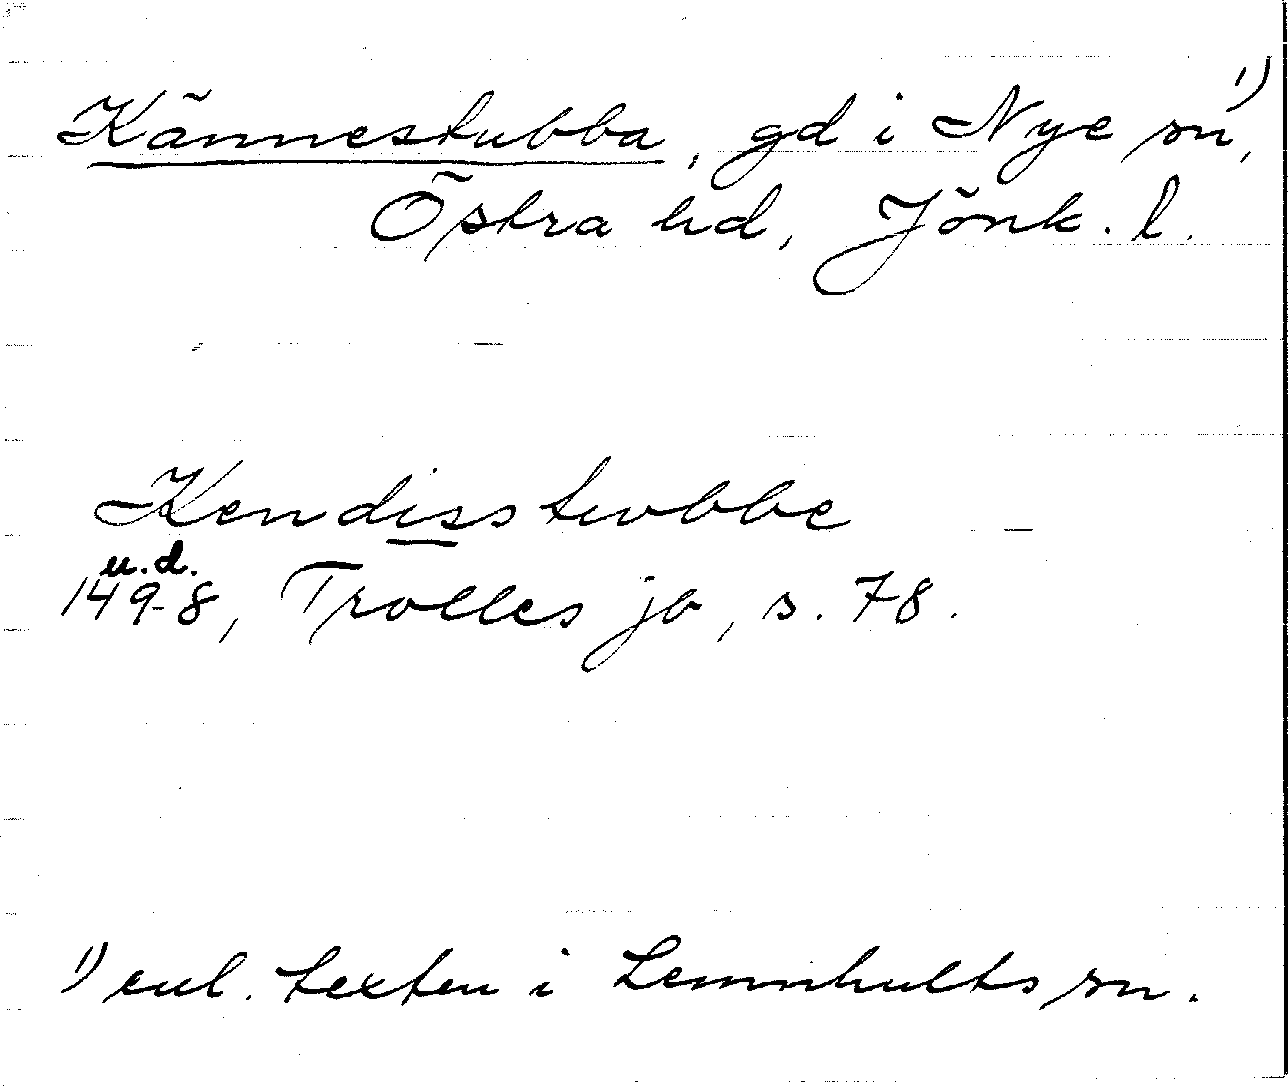 Kännestubba, gd i Nye sn ¹),
Östra hd, Jönk. l.
Kendisstwbbe
u.d.
1498, Trolles jb, s. 78.
¹) enl. texten i Lemnhults sn.